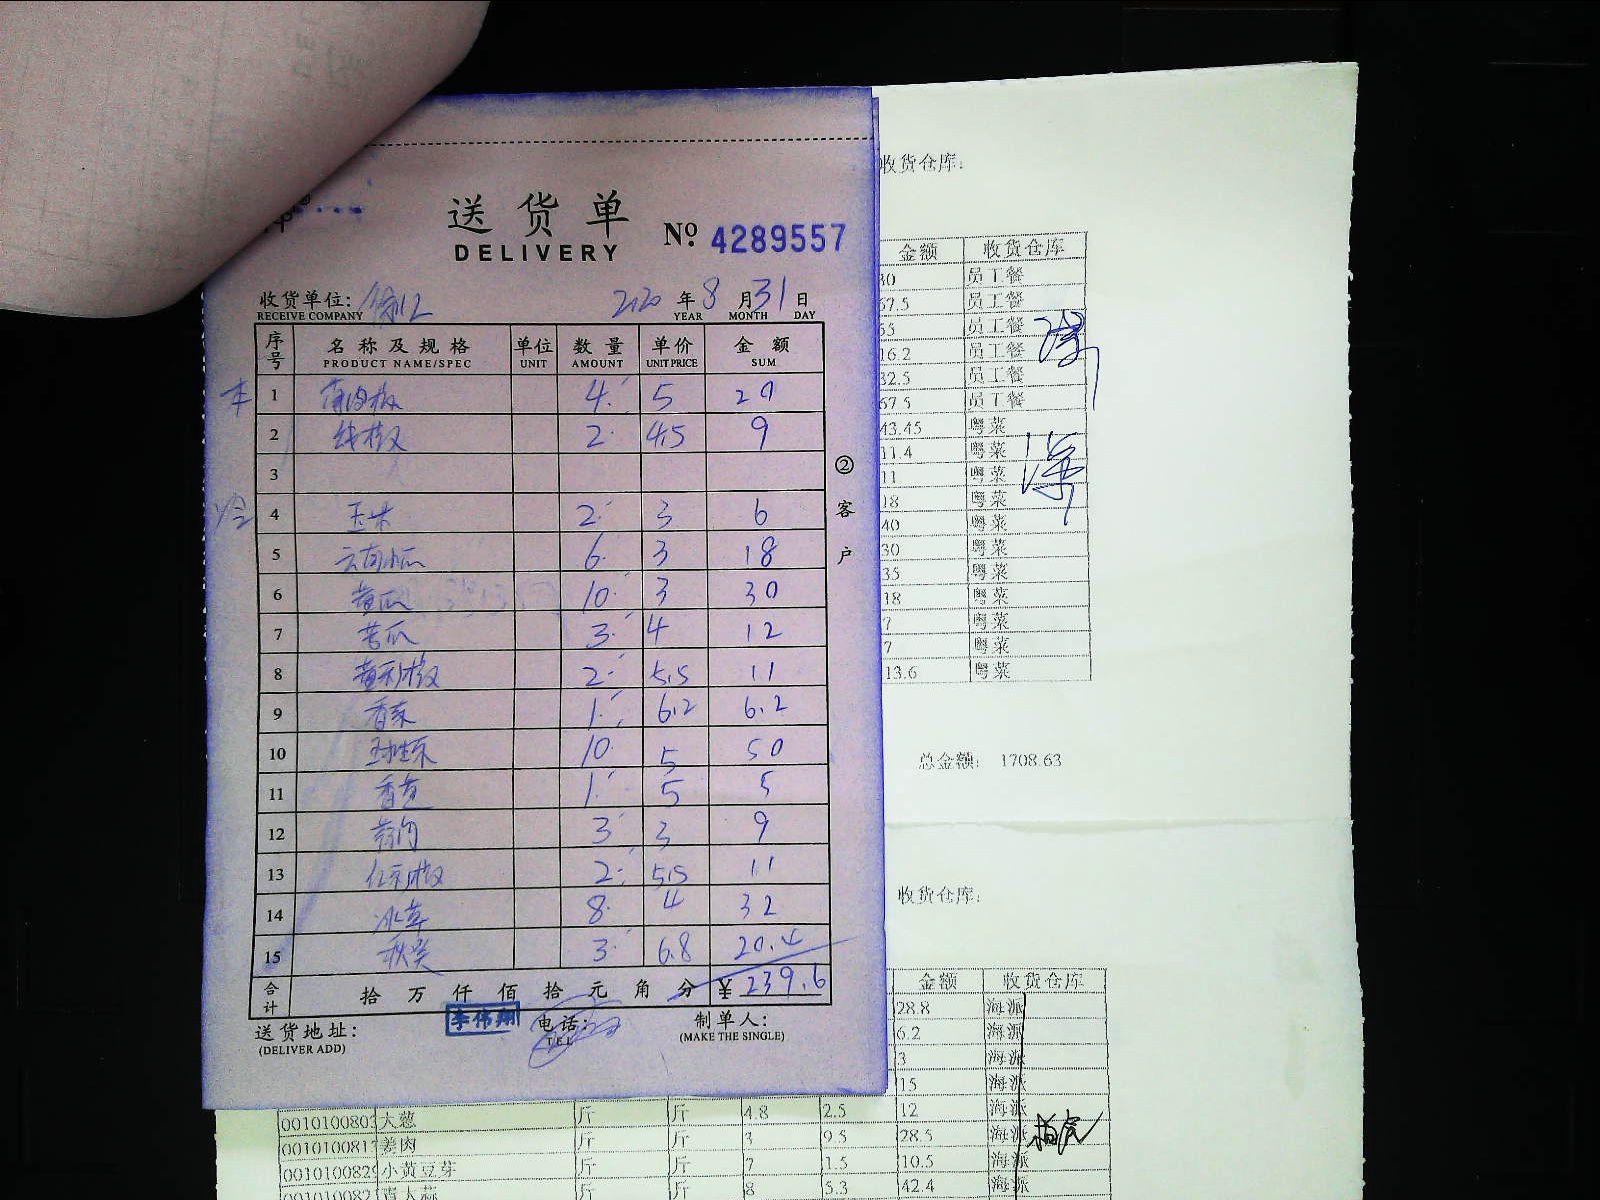 送货单
DELIVERY
No 4289557
收货单位: 2020 年 8 月 31 日
RECEIVE COMPANY YEAR MONTH DAY
序号 名称及规格 单位 数量 单价 金额
PRODUCT NAME/SPEC UNIT AMOUNT UNIT PRICE SUM
1 4 5 20
2 线椒 2 4.5 9
3
4 玉米 2 3 6
5 云南小瓜 6 3 18
6 黄瓜 10 3 30
7 苦瓜 3 4 12
8 黄彩椒 2 5.5 11
9 香菜 1 6.2 6.2
10 10 5 50
11 1 5 5
12 3 3 9
13 红彩椒 2 5.5 11
14 冰草 8 4 32
15 秋葵 3 6.8 20.4
合计 拾 万 仟 佰 拾 元 角 分 ¥ 239.6
送货地址: 李伟翔 电话: 制单人:
(DELIVER ADD) TEL (MAKE THE SINGLE)
②客户
收货仓库:
金额 收货仓库
30 员工餐
67.5 员工餐
55 员工餐
16.2 员工餐
32.5 员工餐
67.5 员工餐
43.45 粤菜
11.4 粤菜
11 粤菜
18 粤菜
40 粤菜
30 粤菜
35 粤菜
18 粤菜
7 粤菜
7 粤菜
13.6 粤菜
总金额: 1708.63
收货仓库:
金额 收货仓库
28.8 海派
6.2 海派
3 海派
15 海派
大葱 斤 斤 4.8 2.5 12 海派
姜肉 斤 斤 3 9.5 28.5 海派
小黄豆芽 斤 斤 7 1.5 10.5 海派
斤 斤 8 5.3 42.4 海派